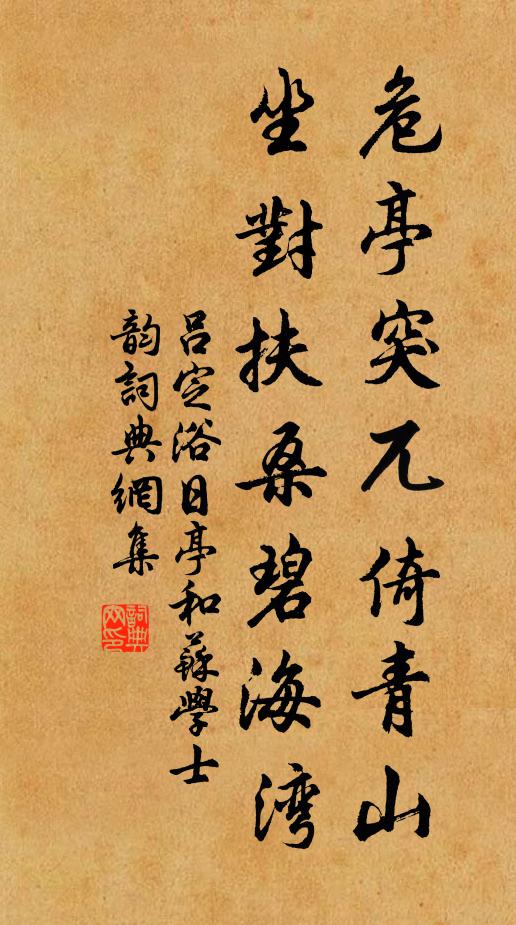 危亭突兀倚青山
坐對扶桑碧海湾
呂定浴日亭和蘇學士
韵詞典網集
詞典网印